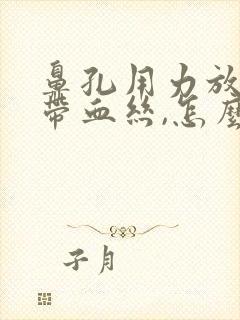 鼻孔用力放
带血丝,怎麽
子月